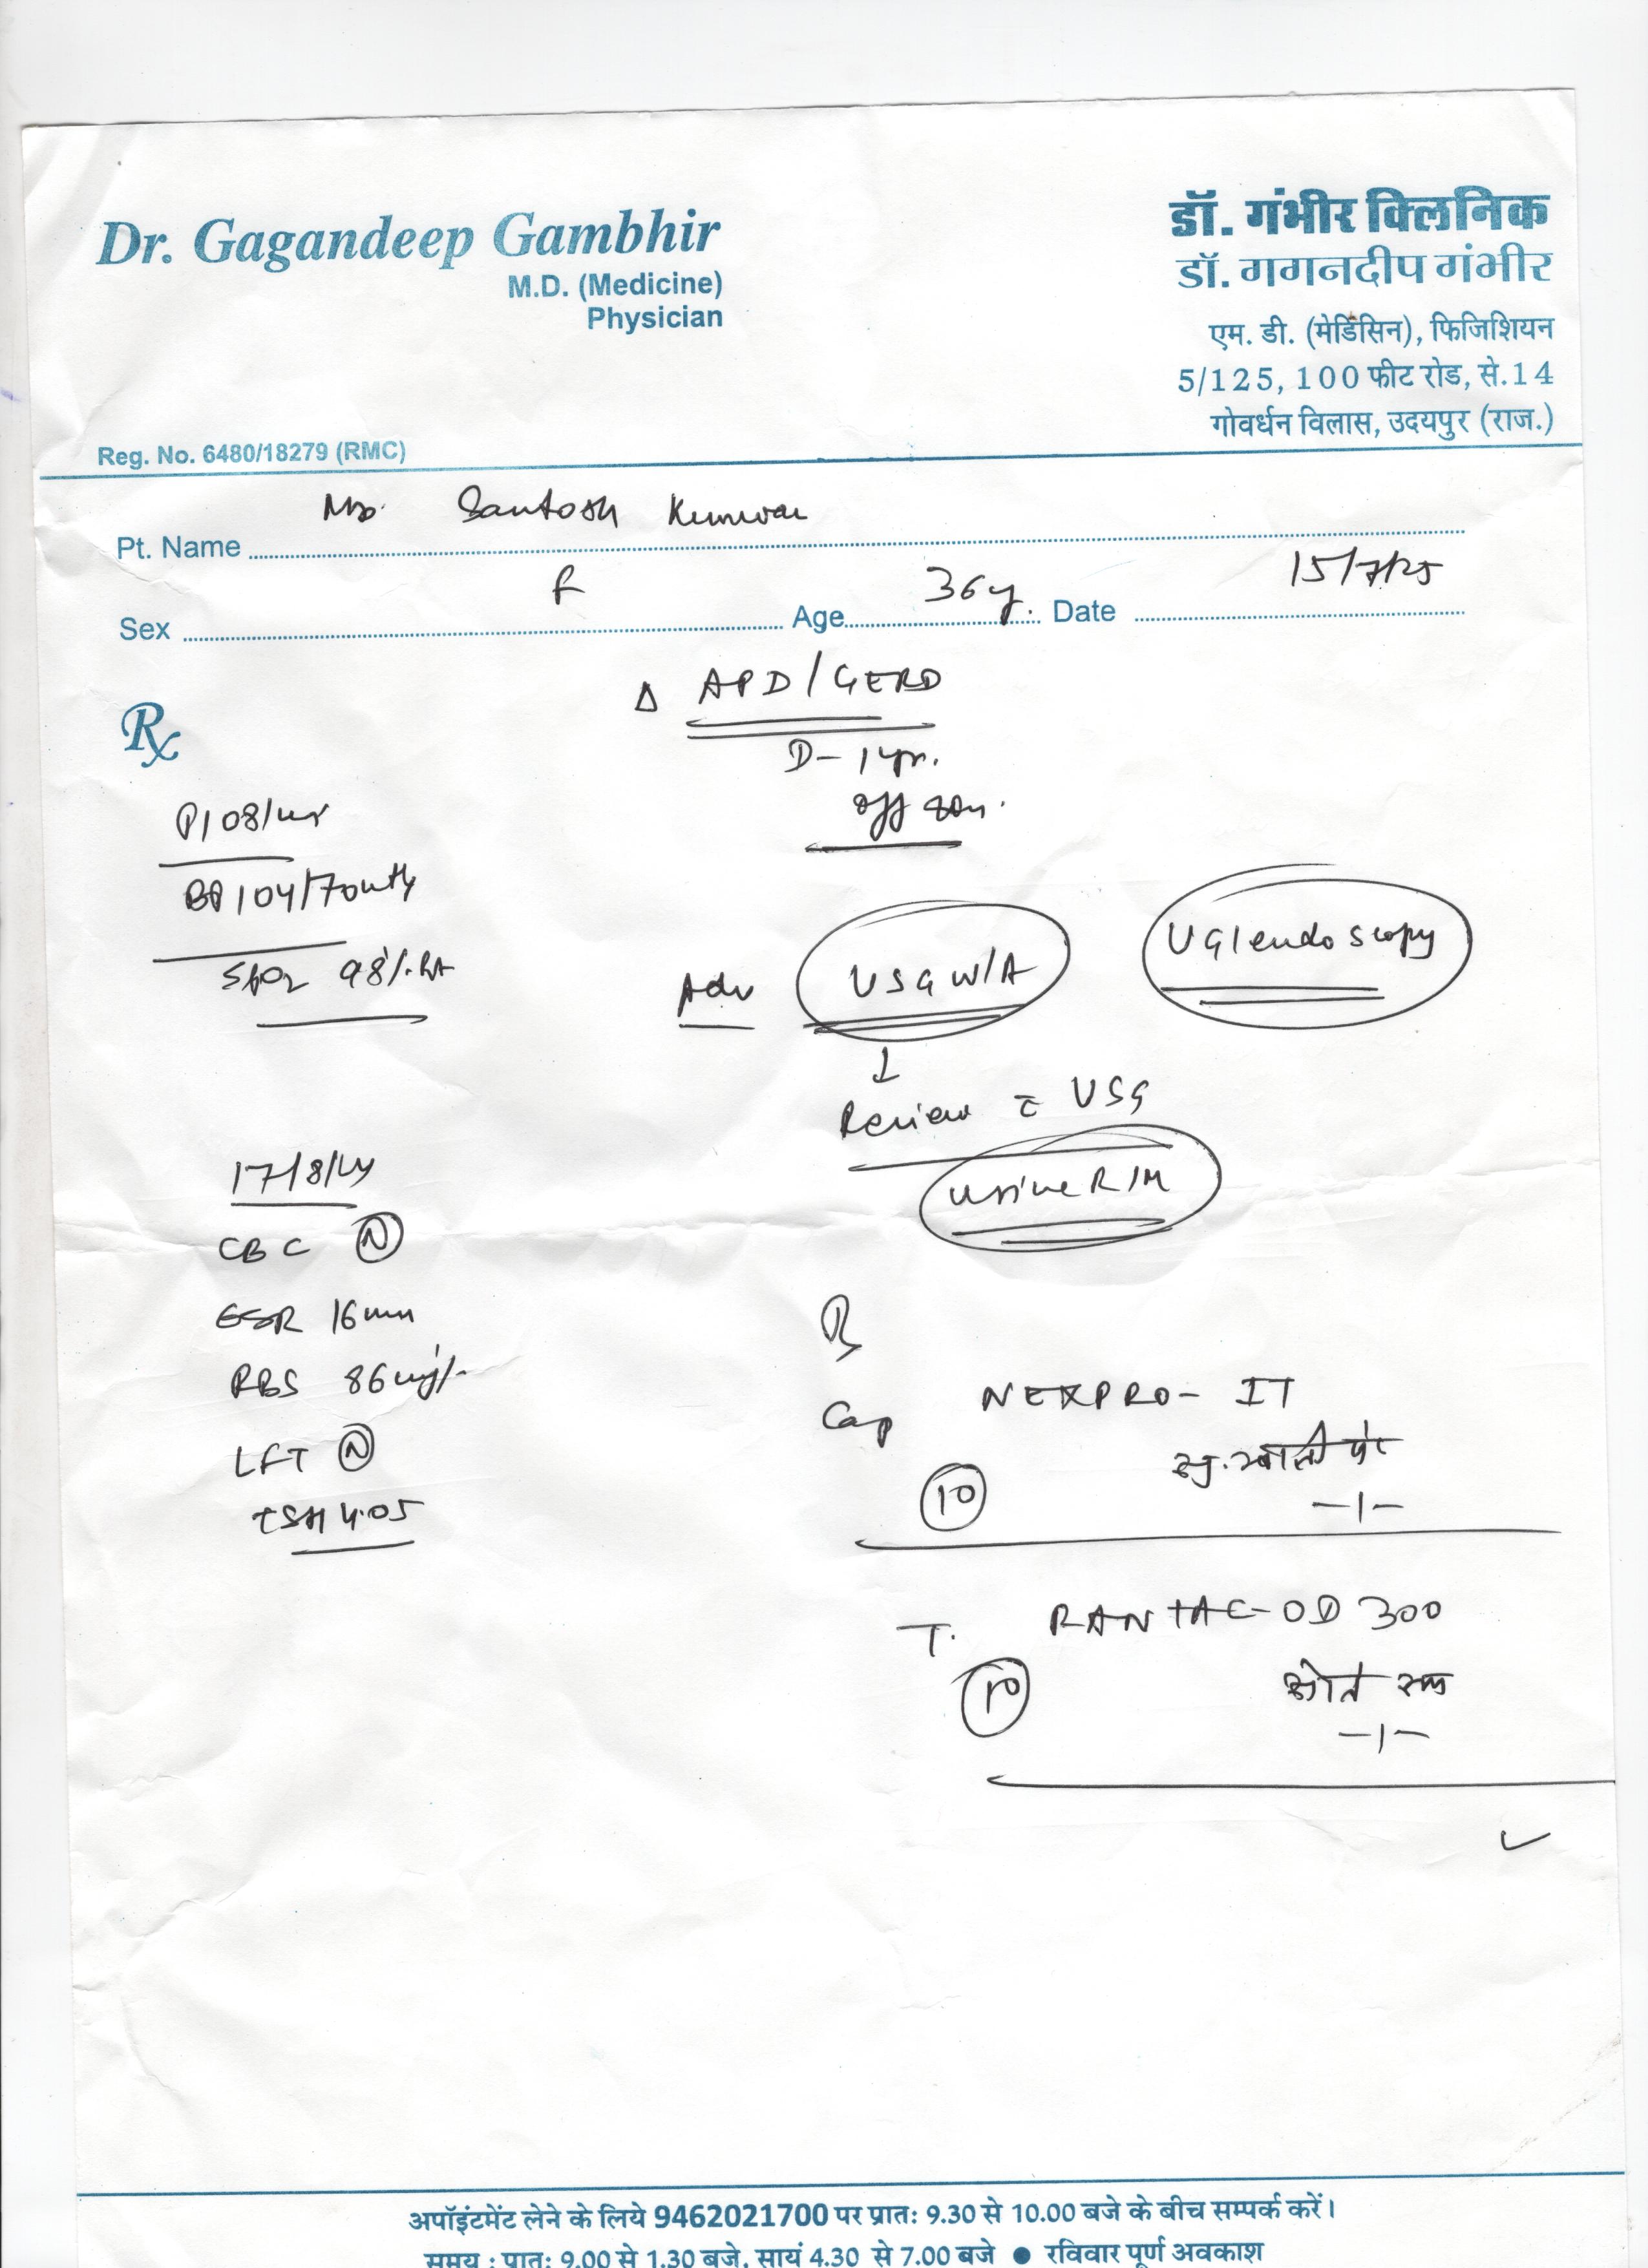 Dr. Gagandeep Gambhir
M.D. (Medicine)
Physician
Reg. No. 6480/18279 (RMC)
डॉ. गंभीर क्लिनिक
डॉ. गगनदीप गंभीर
एम. डी. (मेडिसिन), फिजिशियन
5/125, 100 फीट रोड, से.14
गोवर्धन विलास, उदयपुर (राज.)
Pt. Name Santosh Kunwar
Sex F Age 36y. Date 15/7/25
Rx
Δ APD/GERD
D- 1yr.
off & on.
P108/
BP 104/70
SpO2 98%. RA
Adv USG W/A UGI endoscopy
↓
Review c̄ USG
Urine R/M
17/8/24
CBC (N)
ESR 16mm
RBS 86mg/-
LFT (N)
TSH 4.05
Rx
Cap NEXPRO- IT
सु. खाली पेट
(10) -1-
T. RANTAC-OD 300
(10) सोते
-1-
अपॉइंटमेंट लेने के लिये 9462021700 पर प्रातः 9.30 से 10.00 बजे के बीच सम्पर्क करें।
समय : प्रातः 9.00 से 1.30 बजे, सायं 4.30 से 7.00 बजे ● रविवार पूर्ण अवकाश